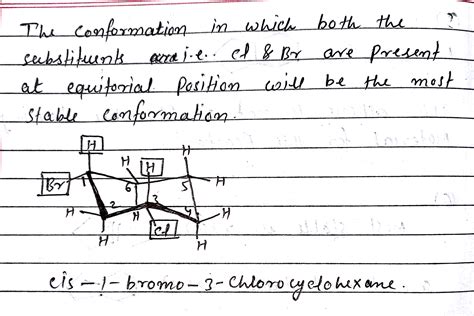 The conformation in which both the
substituents i.e.. Cl & Br are present
at equitorial position will be the most
stable conformation.
H
H H H
Br 1 6 5 H
H 2 H 3 4 H
H Cl H
cis-1-bromo-3-chlorocyclohexane.